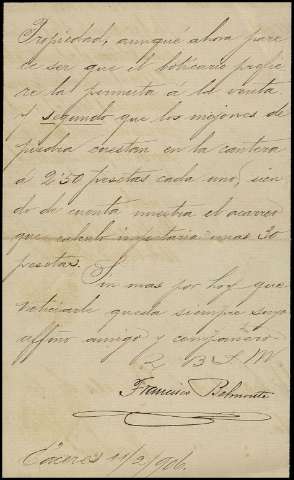 Propiedad, aunqué ahora pare
ce ser que el boticario prefie
re la permuta a la venta.
Y segundo que los mojones de
piedra cuestan en la cantera
á 2'50 pesetas cada uno, sien
do de cuenta nuestra el acarreo
que calculo importaria unas 30
pesetas.
Sin mas por hoy que
noticiarle queda siempre suyo
affmo amigo y compañero
Q B S M
Francisco Belmonte
Cáceres 11/2/906.